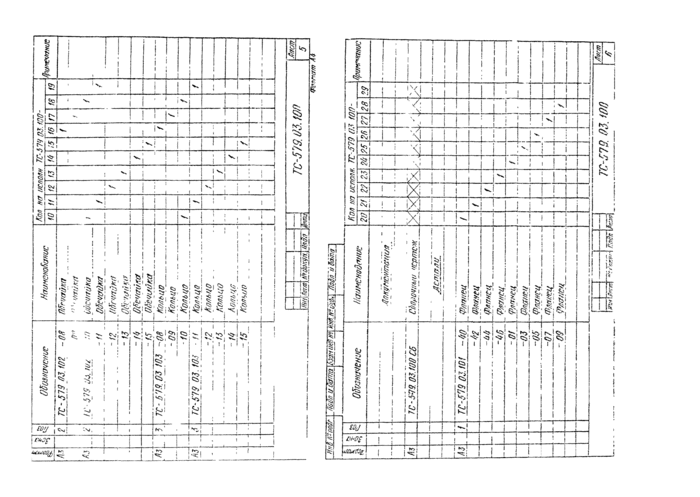 Формат Зона Поз Обозначение Наименование Кол на исполн. ТС-579 03.100- Примечание
10 11 12 13 14 15 16 17 18 19
А3 2 ТС-579 03.102 -08 Обечайка 1
-09
А3 2 ТС-579.03.102 -10 Обечайка 1
-11 Обечайка 1
-12 Обечайка 1
-13 Обечайка 1
-14 Обечайка 1
-15 Обечайка 1
А3 3 ТС-579 03 103 -08 Кольцо 1
-09 Кольцо 1
-10 Кольцо 1 1
А3 3 ТС-579 03.103 -11 Кольцо 1 1
-12 Кольцо 1
-13 Кольцо 1
-14 Кольцо 1
-15 Кольцо 1
ТС-579.03.100 Лист 5
Формат А4
Инв № подл Подп и дата Взам инв № Инв № дубл Подп и дата
Формат Зона Поз Обозначение Наименование Кол на исполн ТС-579 03 100- Примечание
20 21 22 23 24 25 26 27 28 29
Документация
А3 ТС-579 03.100 СБ Сборочный чертеж
Детали
А3 1 ТС-579 03.101 -40 Фланец 1
-42 Фланец 1
-44 Фланец 1
-46 Фланец 1
-01 Фланец 1
-03 Фланец 1
-05 Фланец 1
-07 Фланец 1
-09 Фланец 1
ТС-579.03.100 Лист 6